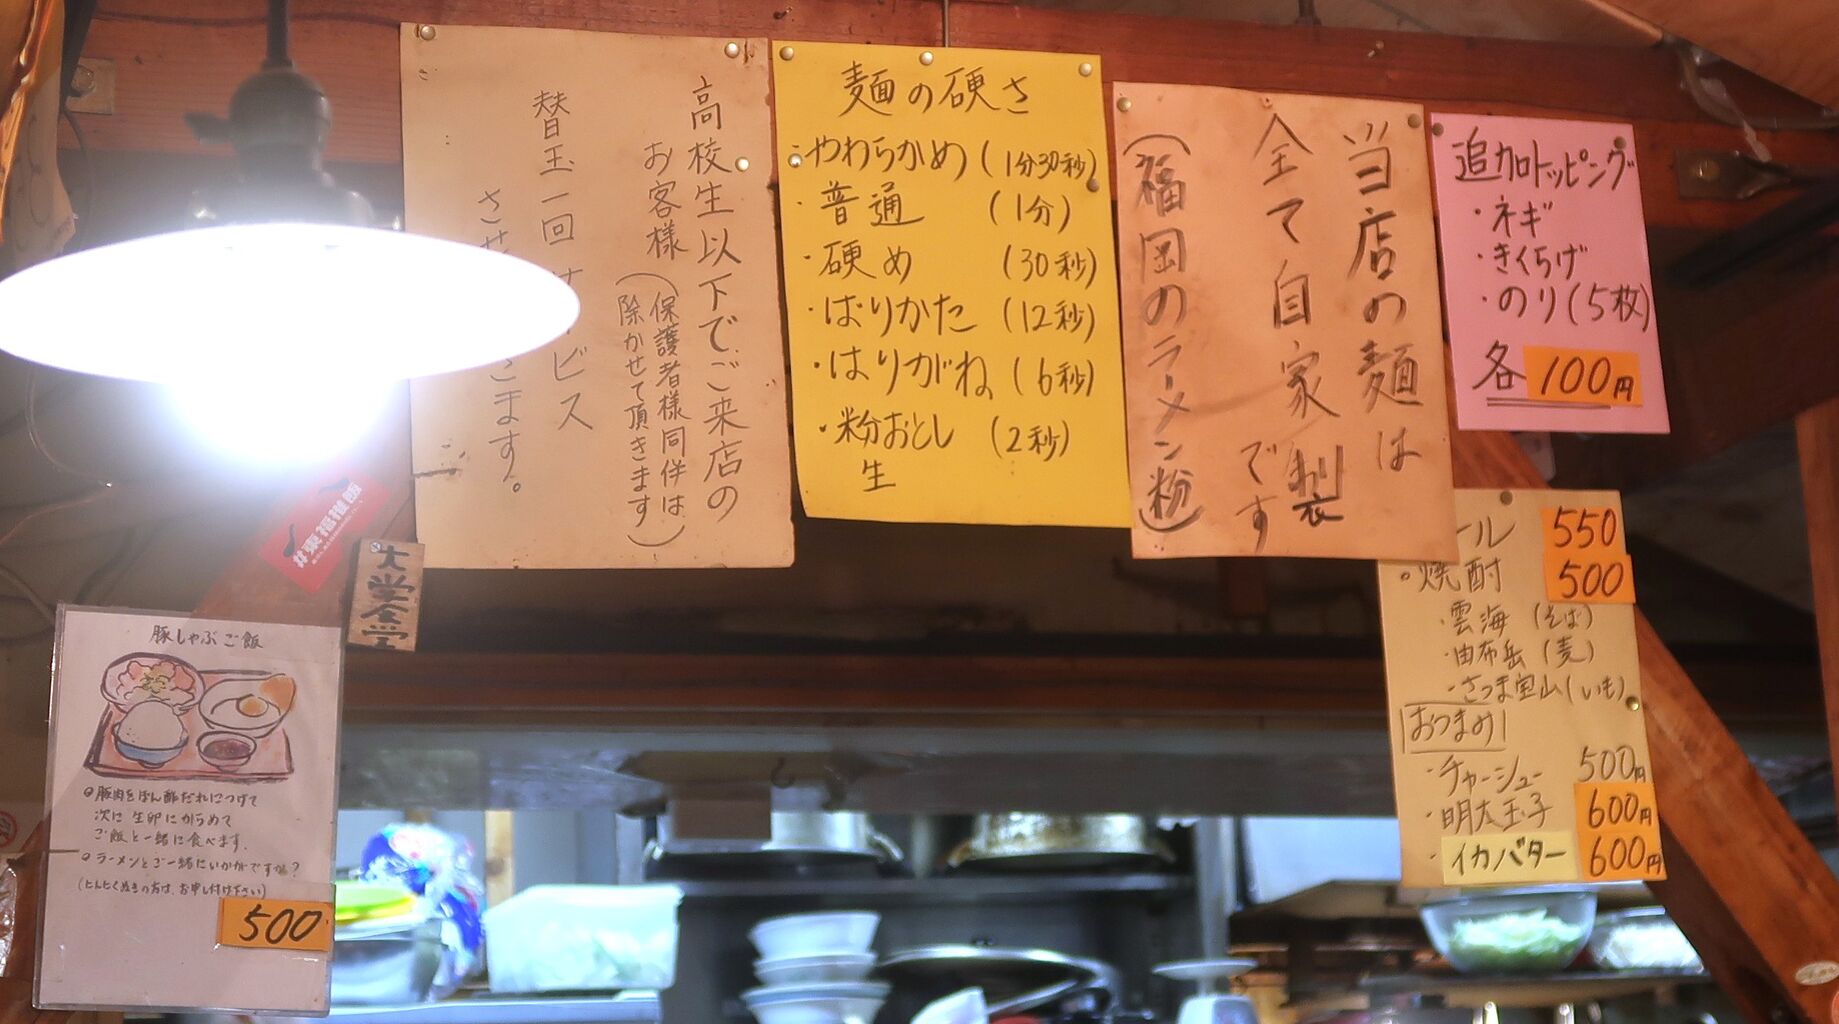 高校生以下でご来店の
お客様(保護者様同伴は
除かせて頂きます)
替玉一回サービス
させ
こます。
麺の硬さ
・やわらかめ(1分30秒)
・普通 (1分)
・硬め (30秒)
・ばりかた (12秒)
・はりがね (6秒)
・粉おとし (2秒)
生
当店の麺は
全て自家製
です
(福岡のラーメン粉)
追加トッピング
・ネギ
・きくらげ
・のり(5枚)
各100円
ール 550
。焼酎 500
・雲海(そば)
・由布岳(麦)
・さつま宝山(いも)
おつまみ
・チャーシュー 500円
・明太玉子 600円
・イカバター 600円
#東福推飯
大学食堂
豚しゃぶご飯
豚肉をぽん酢だれにつけて
次に生卵にからめて
ご飯と一緒に食べます。
ラーメンとご一緒にいかがですか?
(にんにく抜きの方は、お申し付け下さい)
500